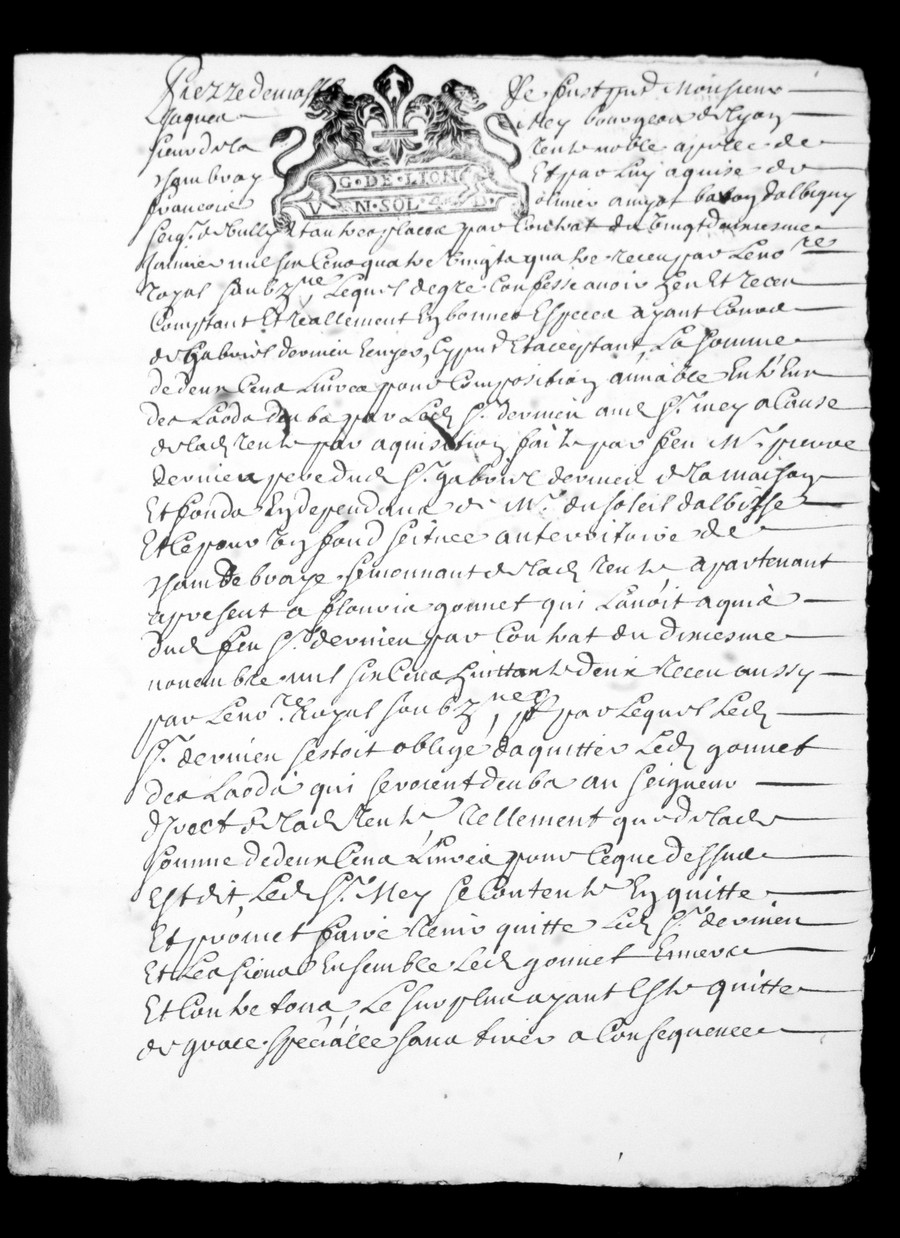 Jaques
Fe fust pnt Monsieur
Mey bourgeois de lyon
sieur de la rente noble apellée de
Chambray Et par luy aquise de
francois olivier amyot baron dalbigny
G·DE·LION
V N·SOL 4 D·
Seigr. de bully Et autres places par Contrat du vingt deuxiesme
Janvier mil six Cens quatre vingts quatre receu par Le no.re
royal soubz.ne, Lequel de gre Confesse avoir heu Et receu
Comptant Et reallement En bonnes Especes ayant Cours
de Gabriel dernieu pnt Et acceptant, La somme
de deux Cens Livres pour Composition amiable Entr'Eux
des Laods deubs par Led. Sr. dernieu aud. Sr. mey a Cause
de lad. rente par aquisition faitte par feu Mr. pierre
dernieu pere dud. Sr. gabriel dernieu de la maison
Et fonds En dependans de Mr. du soleil dalbisse
Et Ce pour un fond scitue au terroitoire de
Chambebraye se mouvant de lad. rente apartenant
a present a flouris gonnet qui Lavoit aquis
dud. feu Sr. dernieu par Contrat du dixiesme
novembre mil six Cens huittante deux receu aussy
par Le nor. Royal soubz.ne, par Lequel Led.
Sr. dernieu sestoit oblige daquitter Led. gonnet
des Laods qui seroient deubs au seigneur
direct de lad. rente tellement que de lad.
somme de deux Cens Livres pour Ce que dessus
Est dit, Led. Sr. Mey se Contente En quitte
Et promet faire tenir quitte Led. Sr. dernieu
Et Les siens Ensemble Led. gonnet Envers
Et Contre tous, Le surplus ayant Este quitte
de grace speciallee sans tirer a Consequence